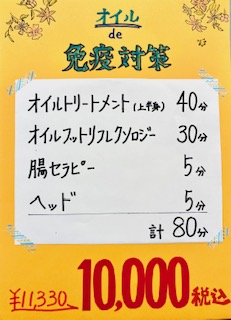 オイル
de
免疫対策
オイルトリートメント(上半身) 40分
オイルフットリフレクソロジー 30分
腸セラピー 5分
ヘッド 5分
計 80分
¥11,330 10,000税込